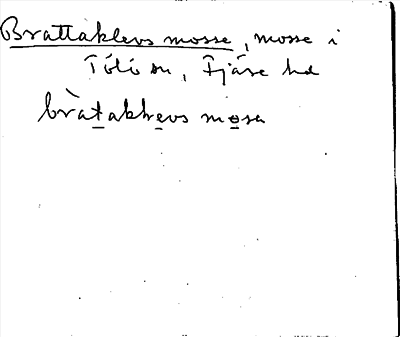 Brattaklevs mosse, mosse i
Tölö sn, Fjäre hd
bràtaklevs mosen